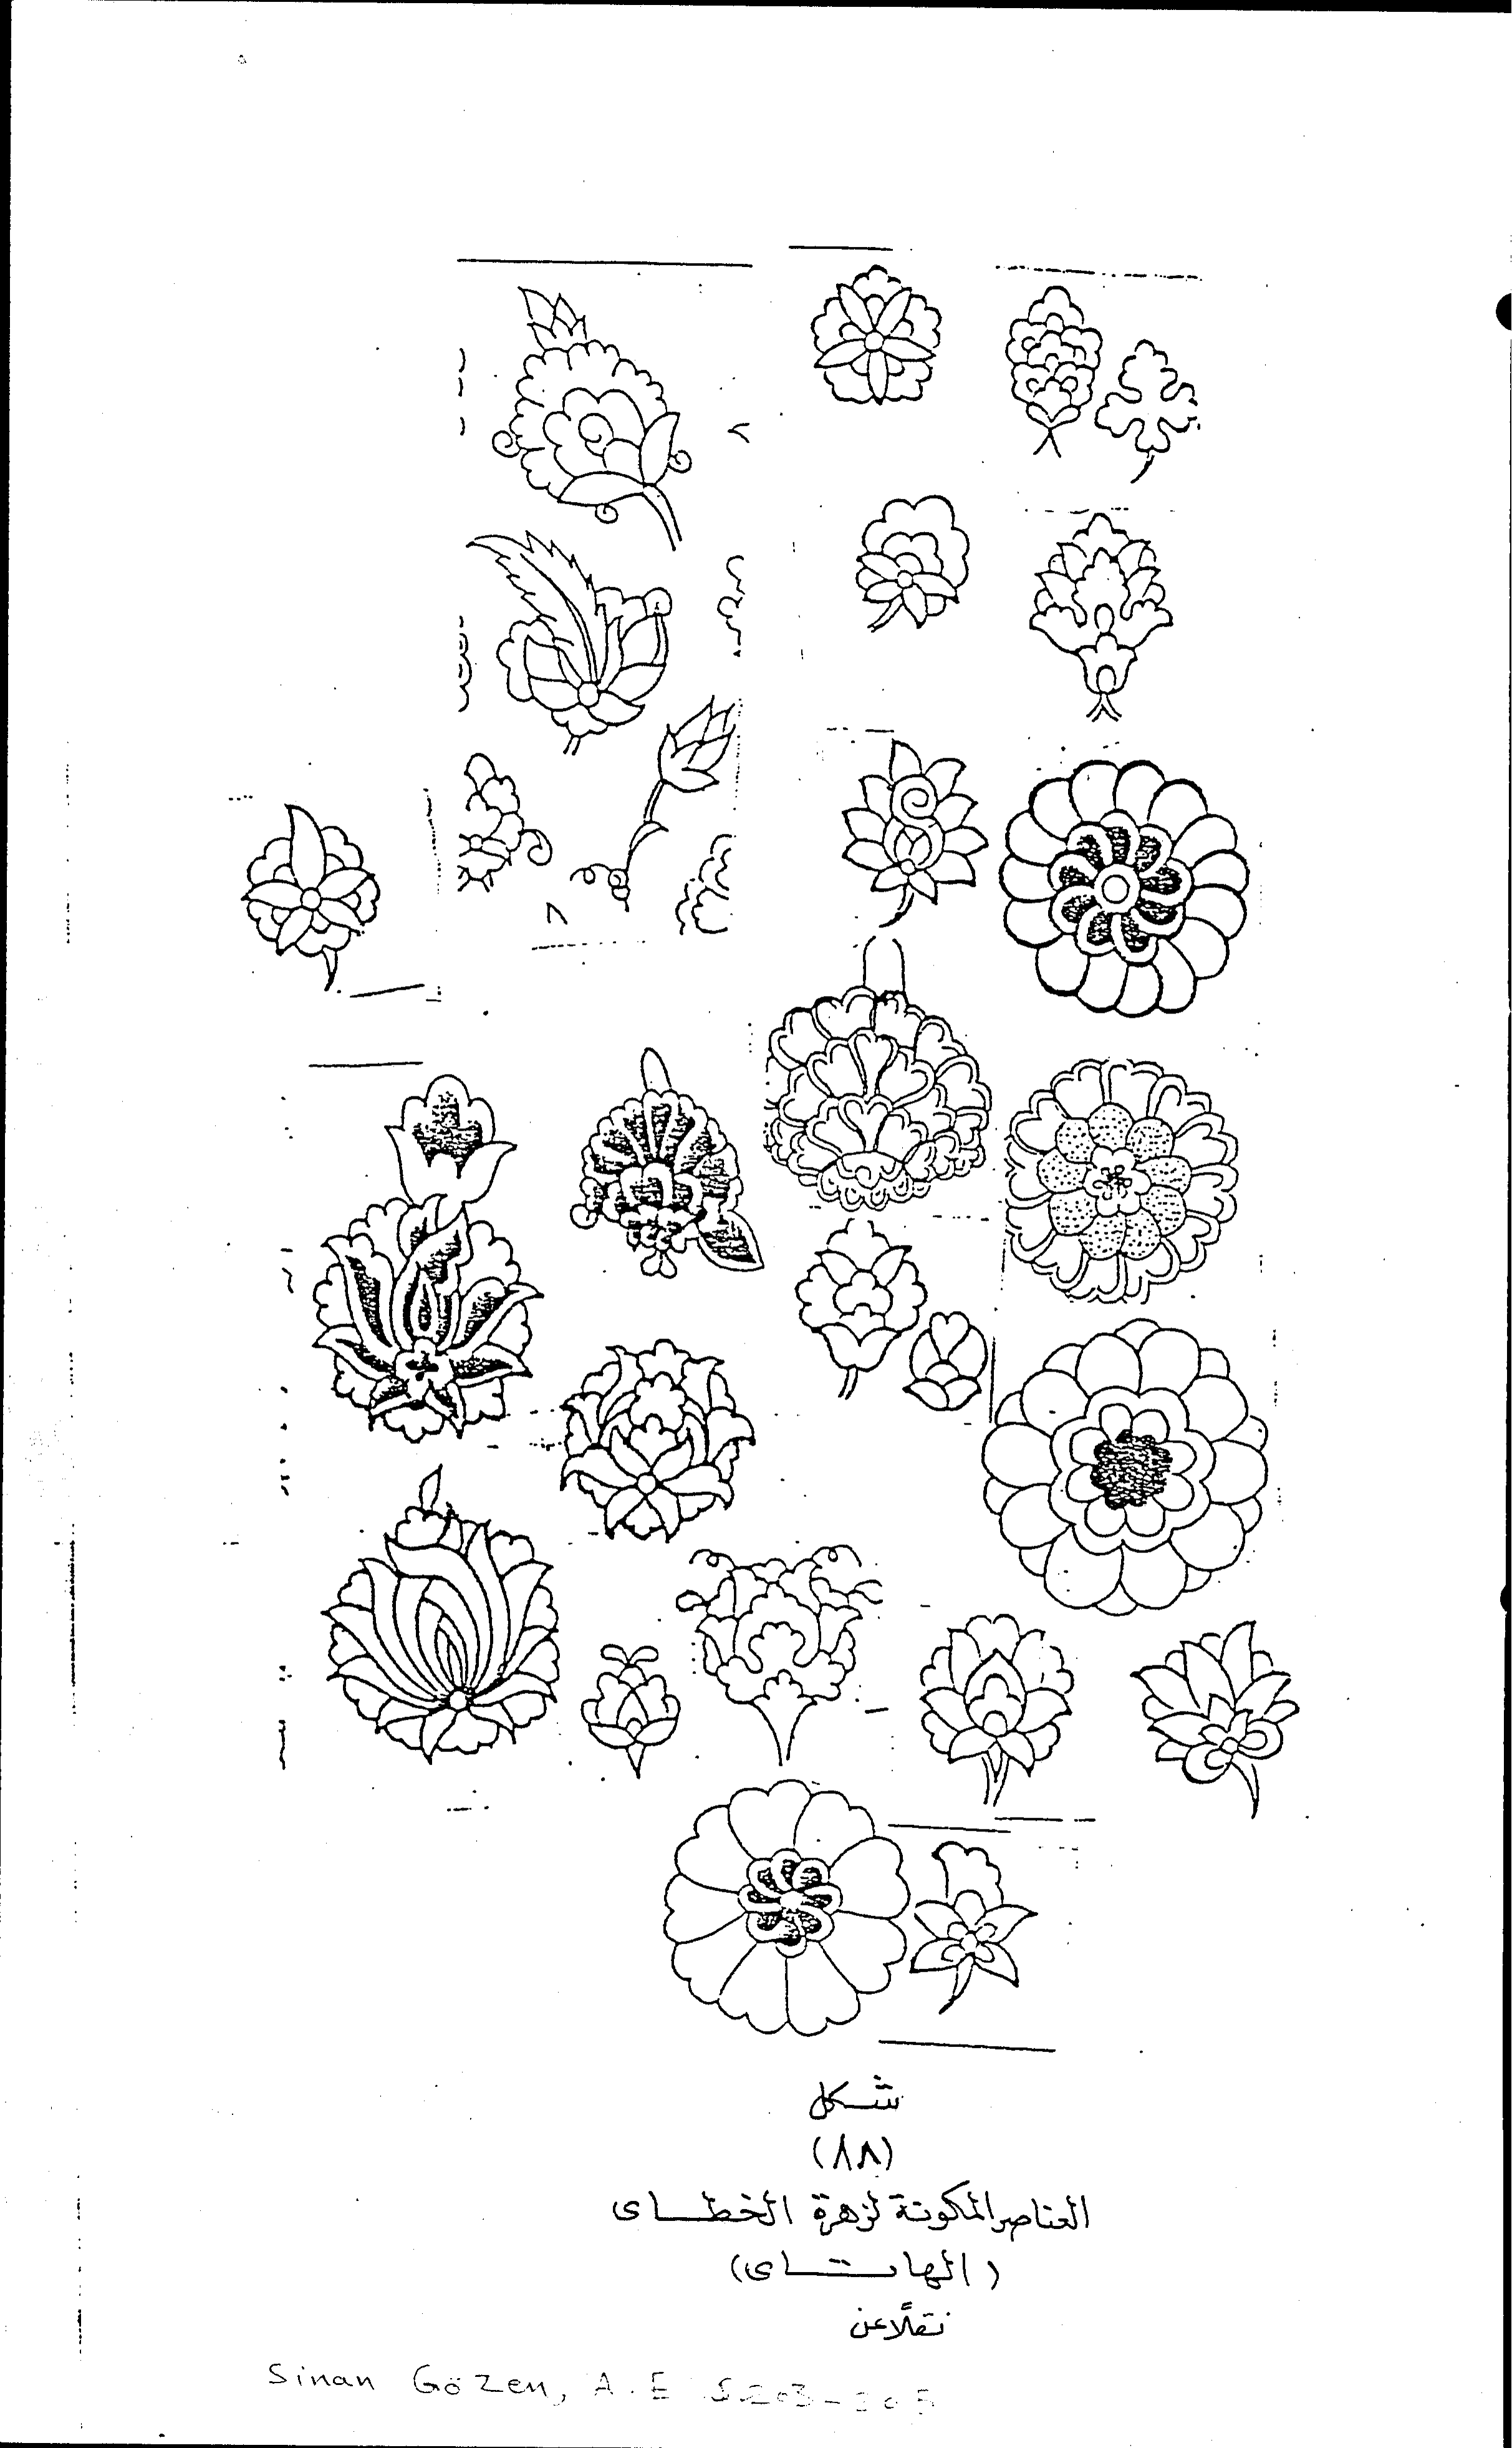 شكل
(٨٨)
العناصر المكونة لزهرة الخطاى
(الهاتاى)
نقلًا عن
Sinan Gözen, A.E S203-205